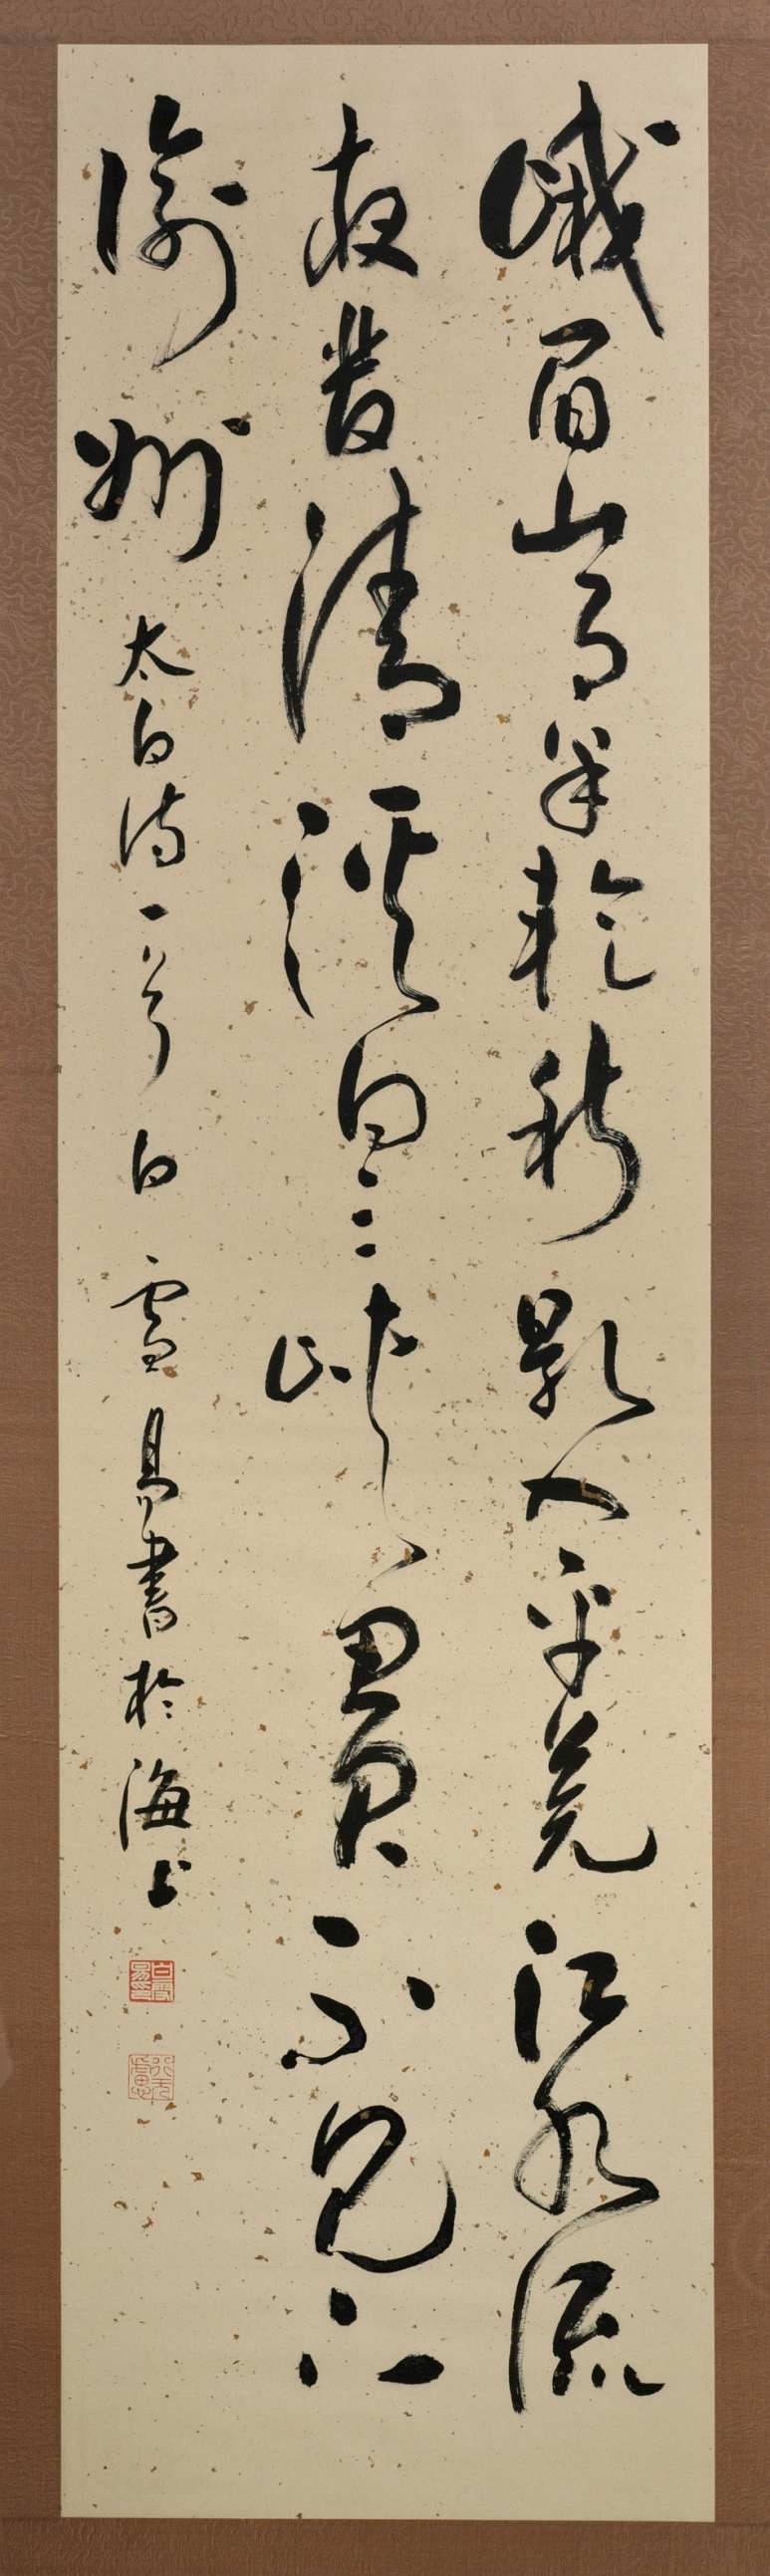 峨眉山月半輪秋影入平羌江水流
夜發清溪向三峽思君不見下
渝州 太白詩一首 白雪易書於海上
白雪易印